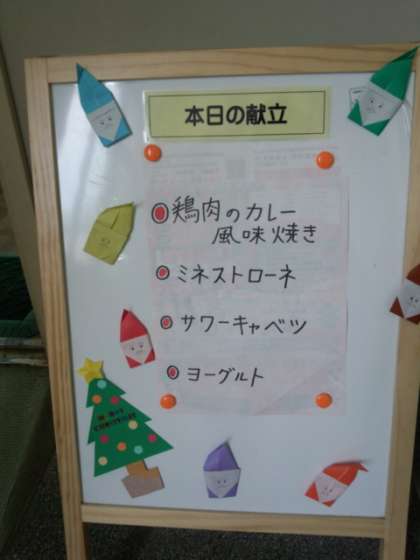 本日の献立
鶏肉のカレー
風味焼き
ミネストローネ
サワーキャベツ
ヨーグルト